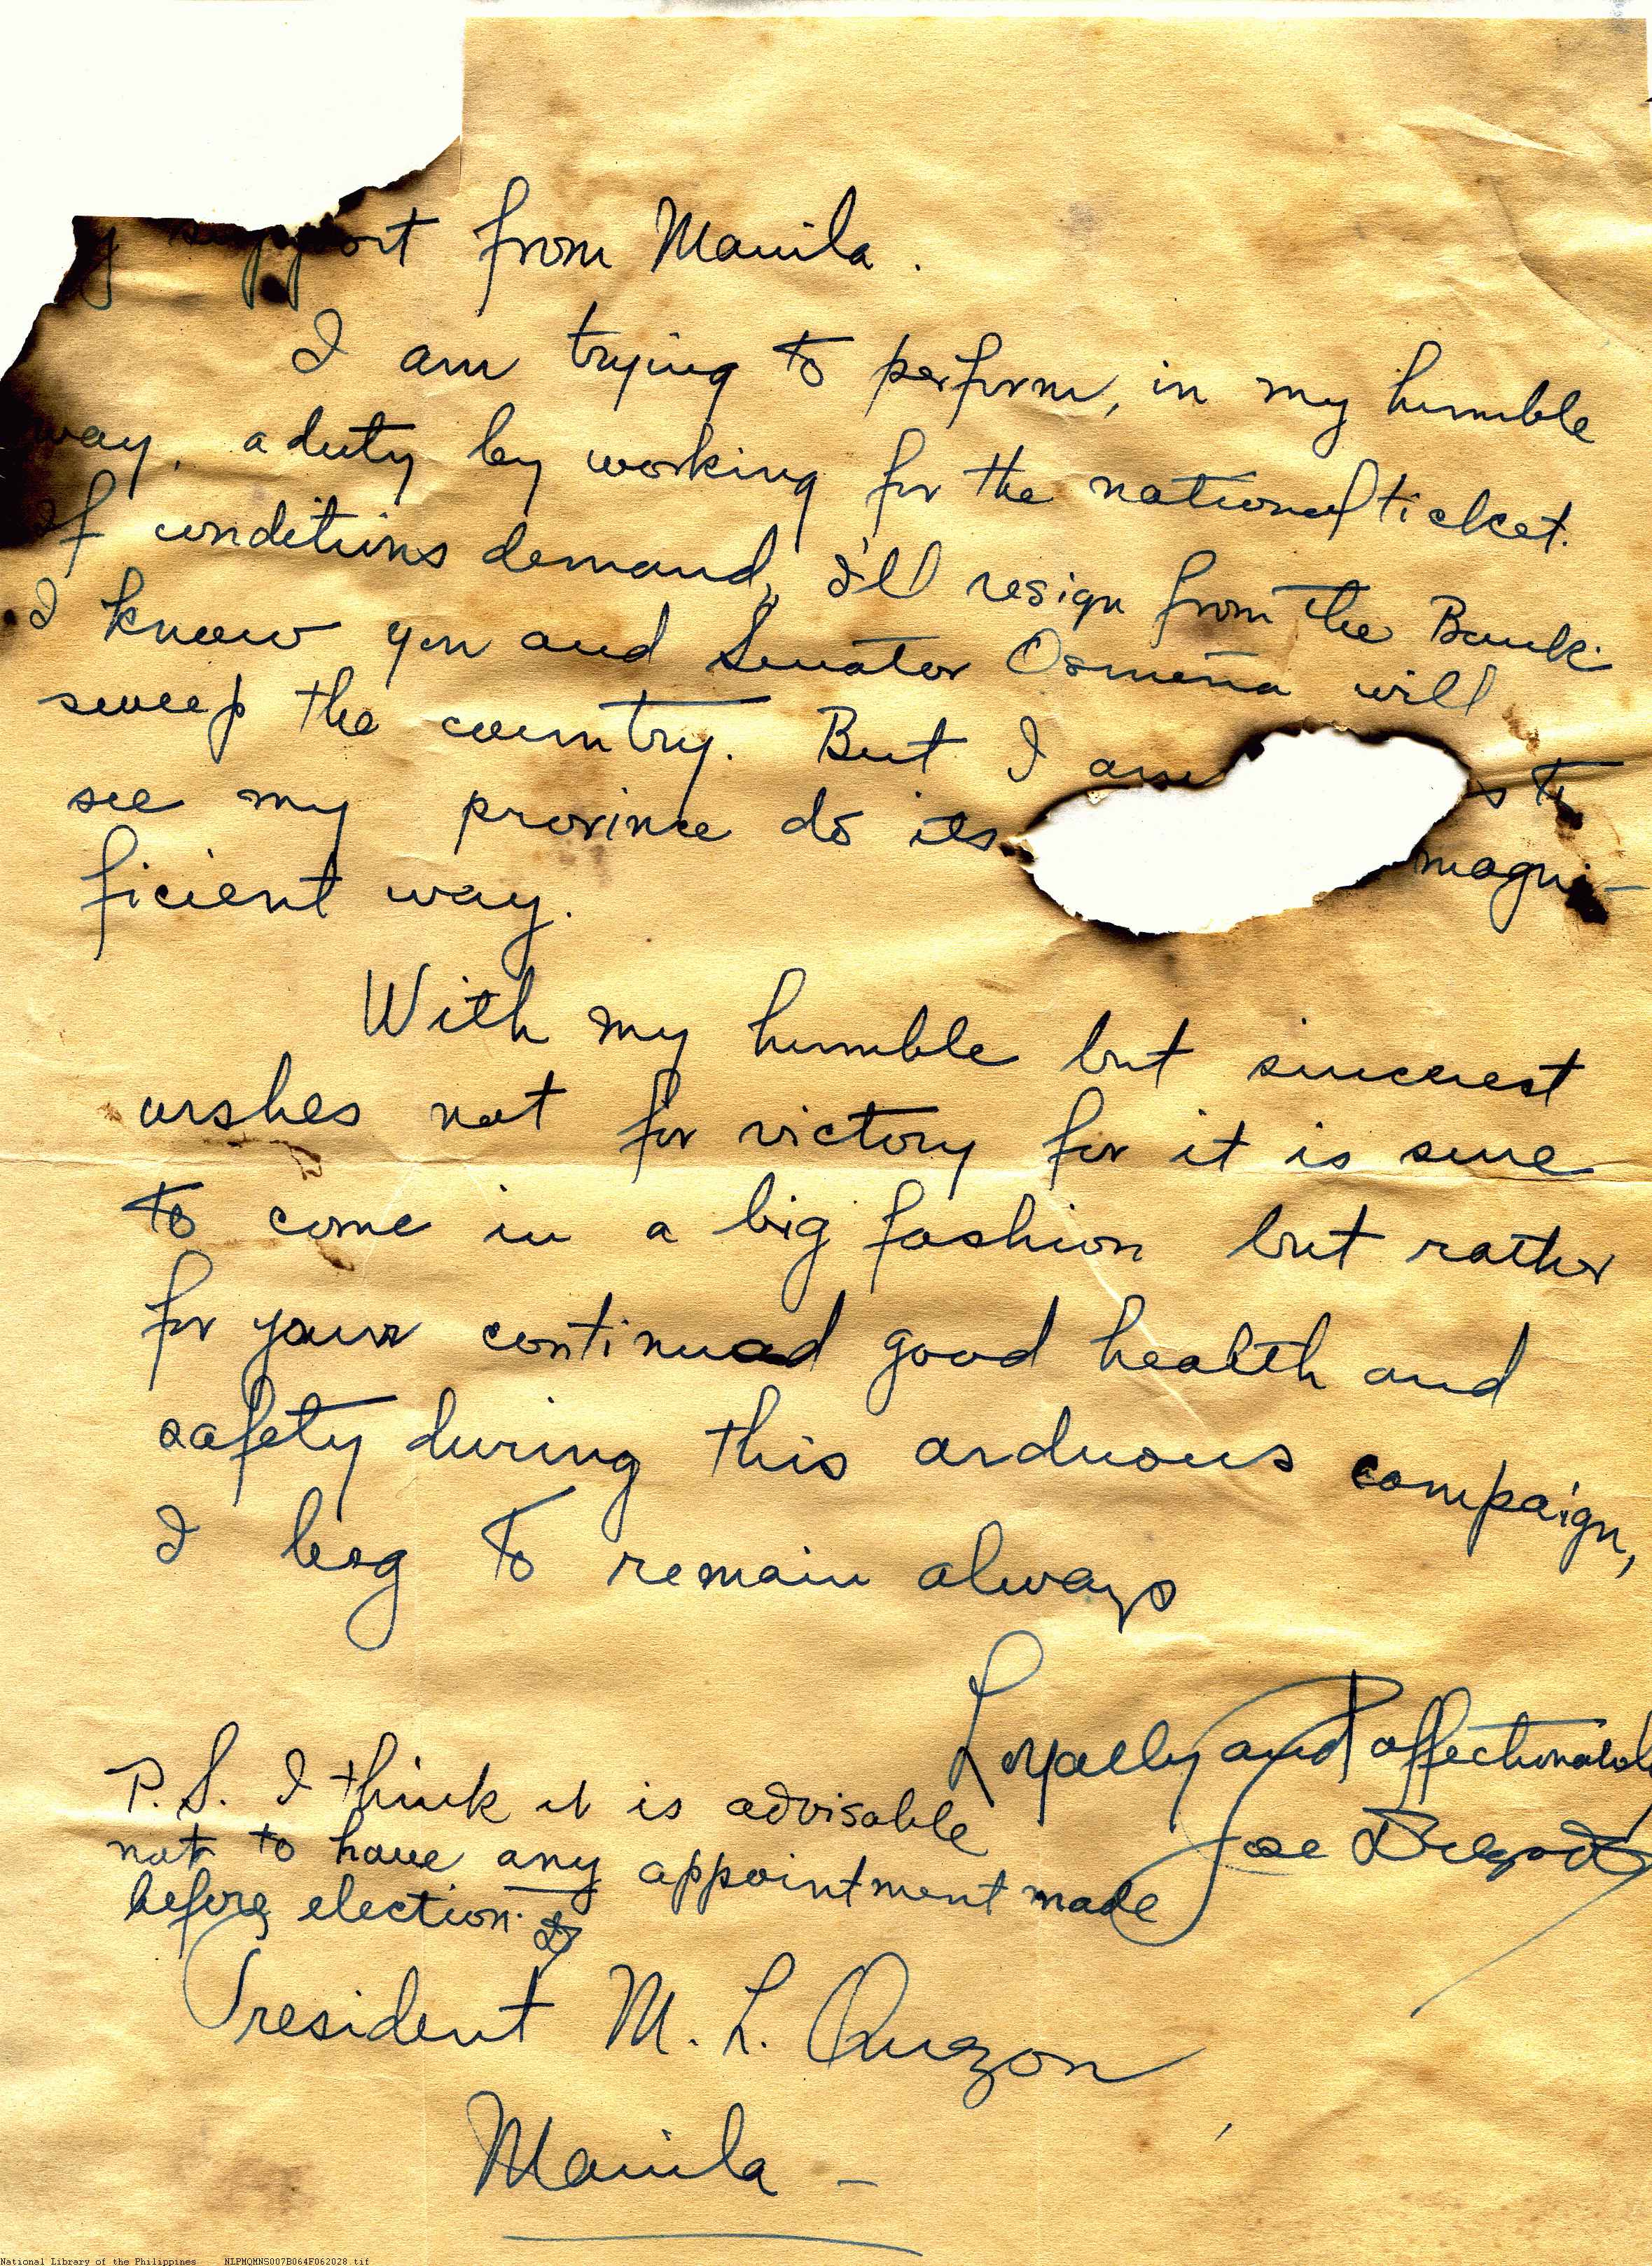 support from Manila.
I am trying to perform, in my humble
way, a duty by working for the national ticket.
If conditions demand, I'll resign from the Bank.
I know you and Senator Osmeña will
sweep the country. But I to
see my province do its magni-
ficient way.
With my humble but sincerest
wishes not for victory for it is sure
to come in a big fashion but rather
for your continued good health and
safety during this arduous campaign,
I beg to remain always
Loyally and affectionately
Jose
P.S. I think it is advisable
not to have any appointment made
before election.
President M. L. Quezon
Manila –
National Library of the Philippines NLPMQMNS007B064F062028.tif